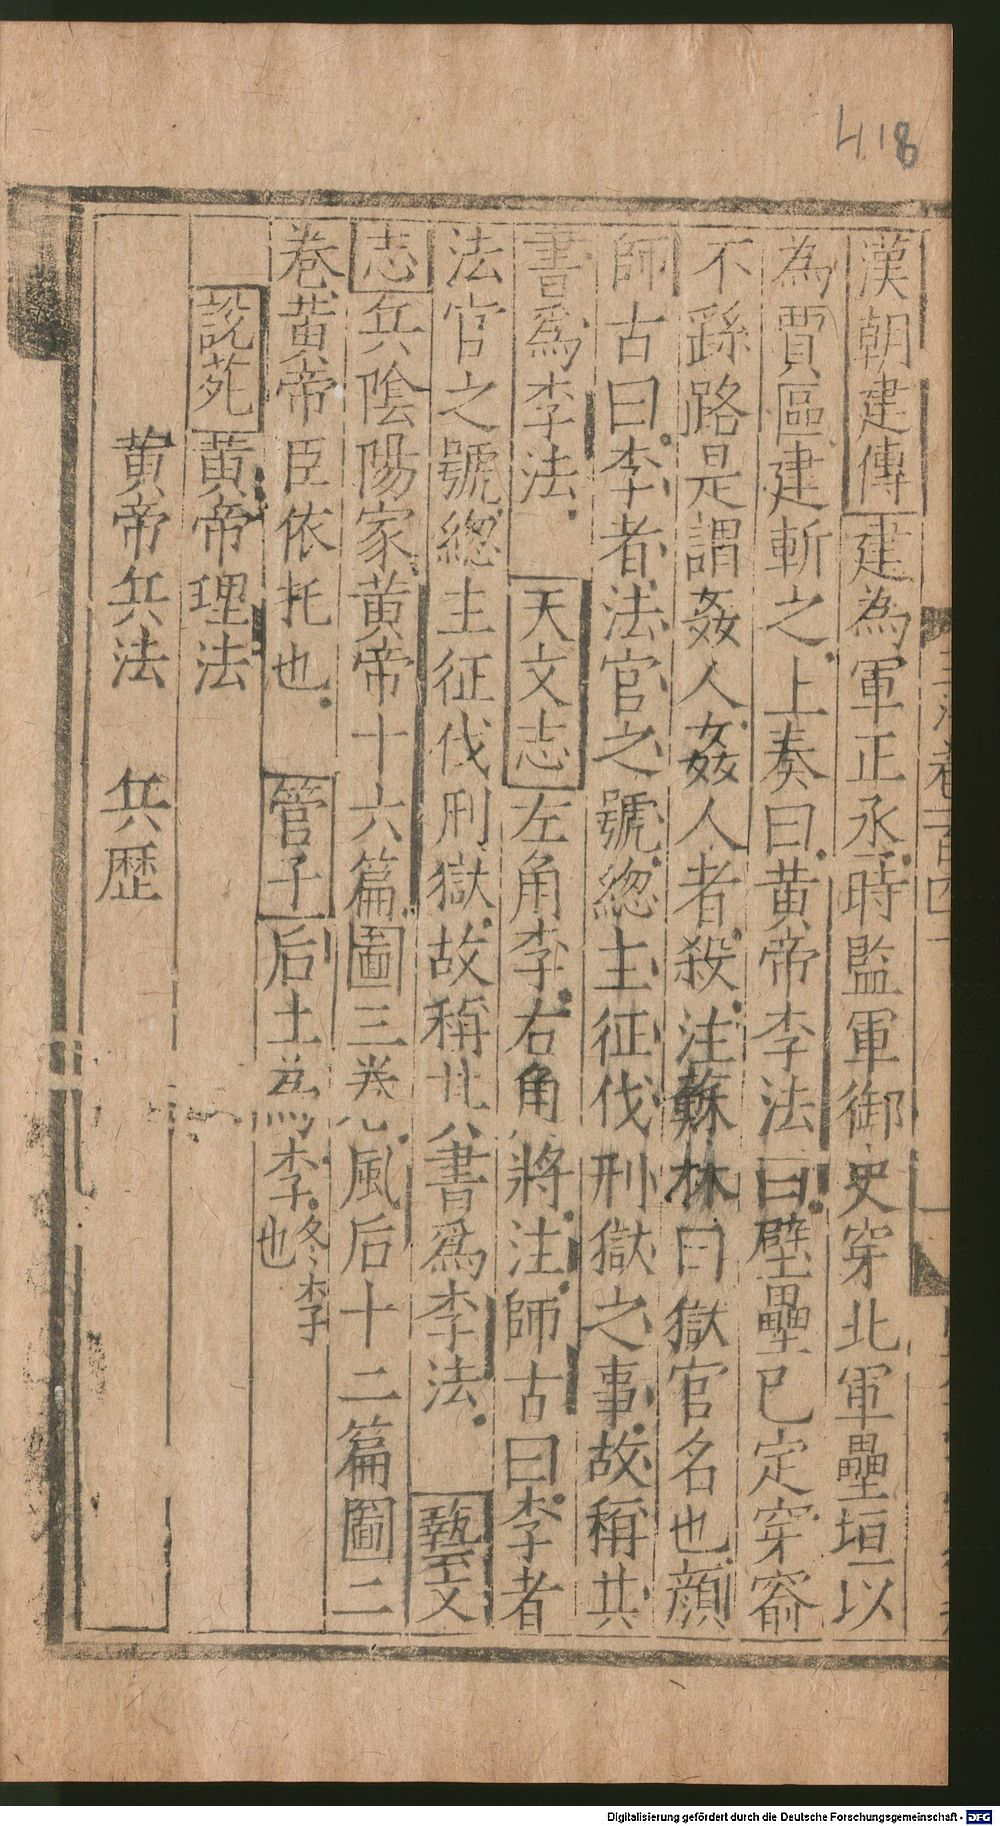 漢胡建傳建為軍正丞時監軍御史穿北軍壘垣以
為賈區建斬之上奏曰黄帝李法曰壁壘已定穿窬
不繇路是謂姦人姦人者殺注蘇林曰獄官名也顔
師古曰李者法官之號緫主征伐刑獄之事故稱其
書爲李法 天文志左角李右角將注師古曰李者
法官之號緫主征伐刑獄故稱其書爲李法 藝文
志兵陰陽家黄帝十六篇圖三卷 風后十二篇圖二
卷黄帝臣依托也 管子后土爲李冬李
也
說苑黄帝理法
黄帝兵法 兵歷
418
Digitalisierung gefördert durch die Deutsche Forschungsgemeinschaft - DFG